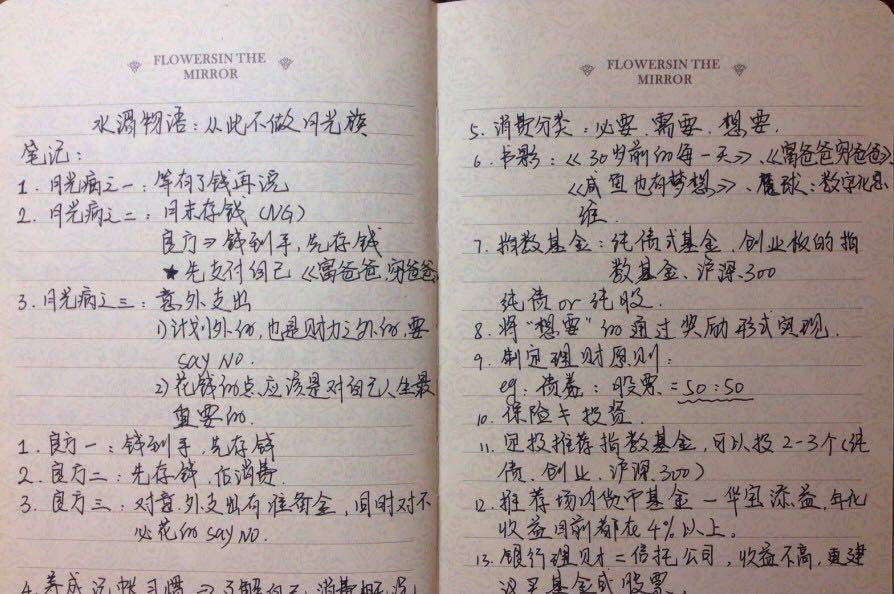 FLOWERSIN THE
MIRROR
水湄物语：从此不做月光族
笔记：
1. 月光病之一：等有了钱再说
2. 月光病之二：月末存钱（NG）
良方⇒钱到手，先存钱
★先支付自己《富爸爸,穷爸爸》
3. 月光病之三：意外支出
1）计划外的，也是财力之外的，要
say NO.
2）花钱的点应该是对自己人生最
重要的
1. 良方一：钱到手，先存钱
2. 良方二：先存钱，后消费
3. 良方三：对意外支出有准备金，同时对不
必花的 say NO.
4. 养成记帐习惯 ⇒ 了解自己消费
FLOWERSIN THE
MIRROR
5. 消费分类：必要、需要、想要.
6. 书影：《30岁前的每一天》、《富爸爸穷爸爸》
《咸鱼也有梦想》、魔球：数字化思
维
7. 指数基金：纯债式基金、创业板的指
数基金、沪深300
纯债 or 纯股.
8. 将“想要”的通过奖励形式实现.
9. 制定理财原则：
eg：债券：股票 = 50:50
10. 保险≠投资.
11. 定投推荐指数基金，可以投2-3个（纯
债、创业、沪深300）
12. 推荐场内货币基金—华宝添益，年化
收益目前都在4%以上。
13. 银行理财=信托公司，收益不高，更建
议买基金或股票.